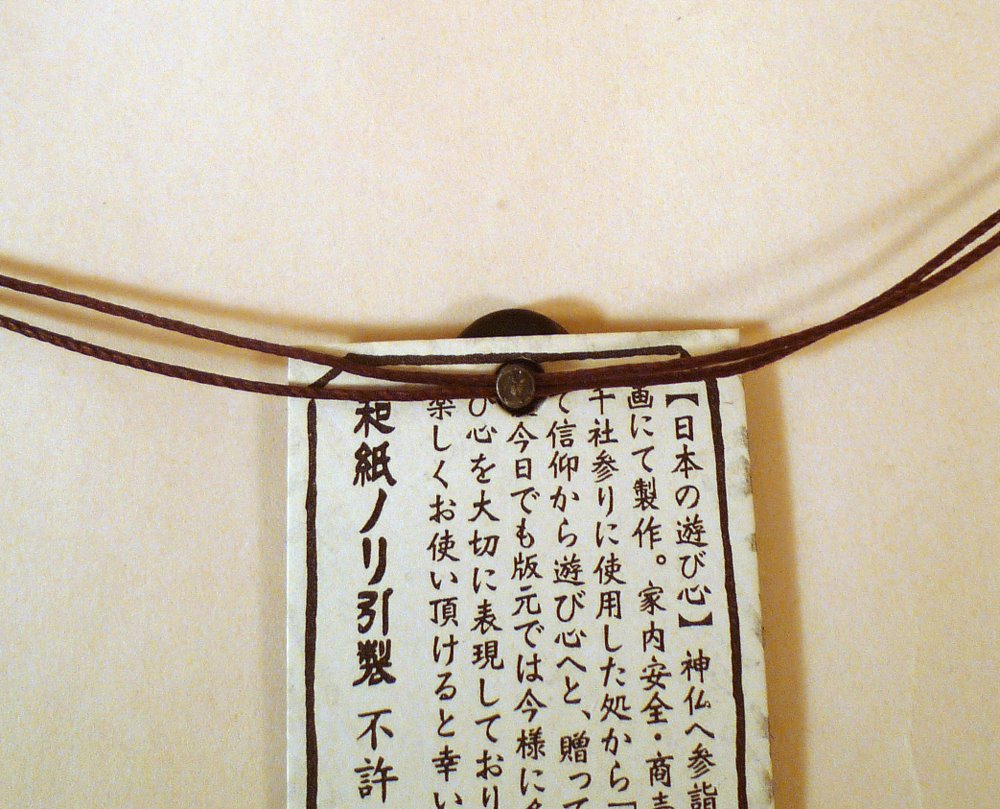 【日本の遊び心】神仏へ参詣
画にて製作。家内安全・商売
千社参りに使用した処から「
て信仰から遊び心へと、贈って
今日でも版元では今様に
び心を大切に表現しており
楽しくお使い頂けると幸い
和紙ノリ引製 不許